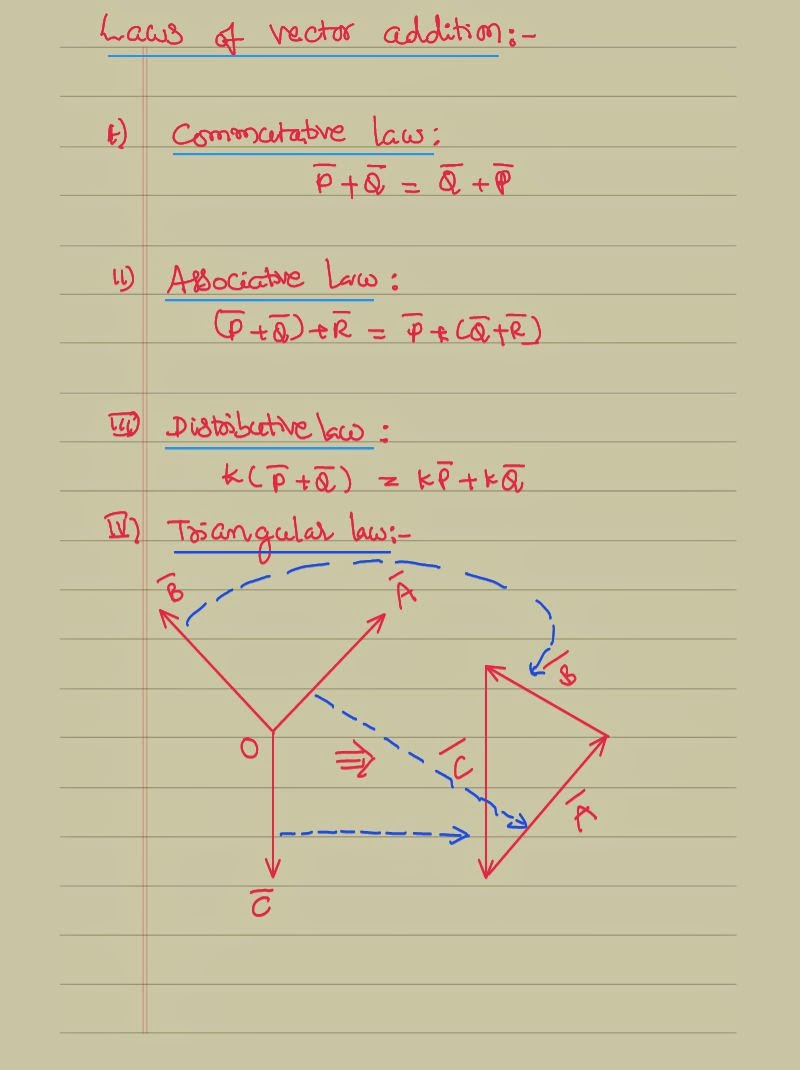 Laws of vector addition:-
i) Commutative law:
P̅ + Q̅ = Q̅ + P̅
ii) Associative law:
(P̅ + Q̅) + R̅ = P̅ + (Q̅ + R̅)
III) Distributive law:
k(P̅ + Q̅) = kP̅ + kQ̅
IV) Triangular law:-
B̅ A̅
B̅
O ⇒ C̅
A̅
C̅